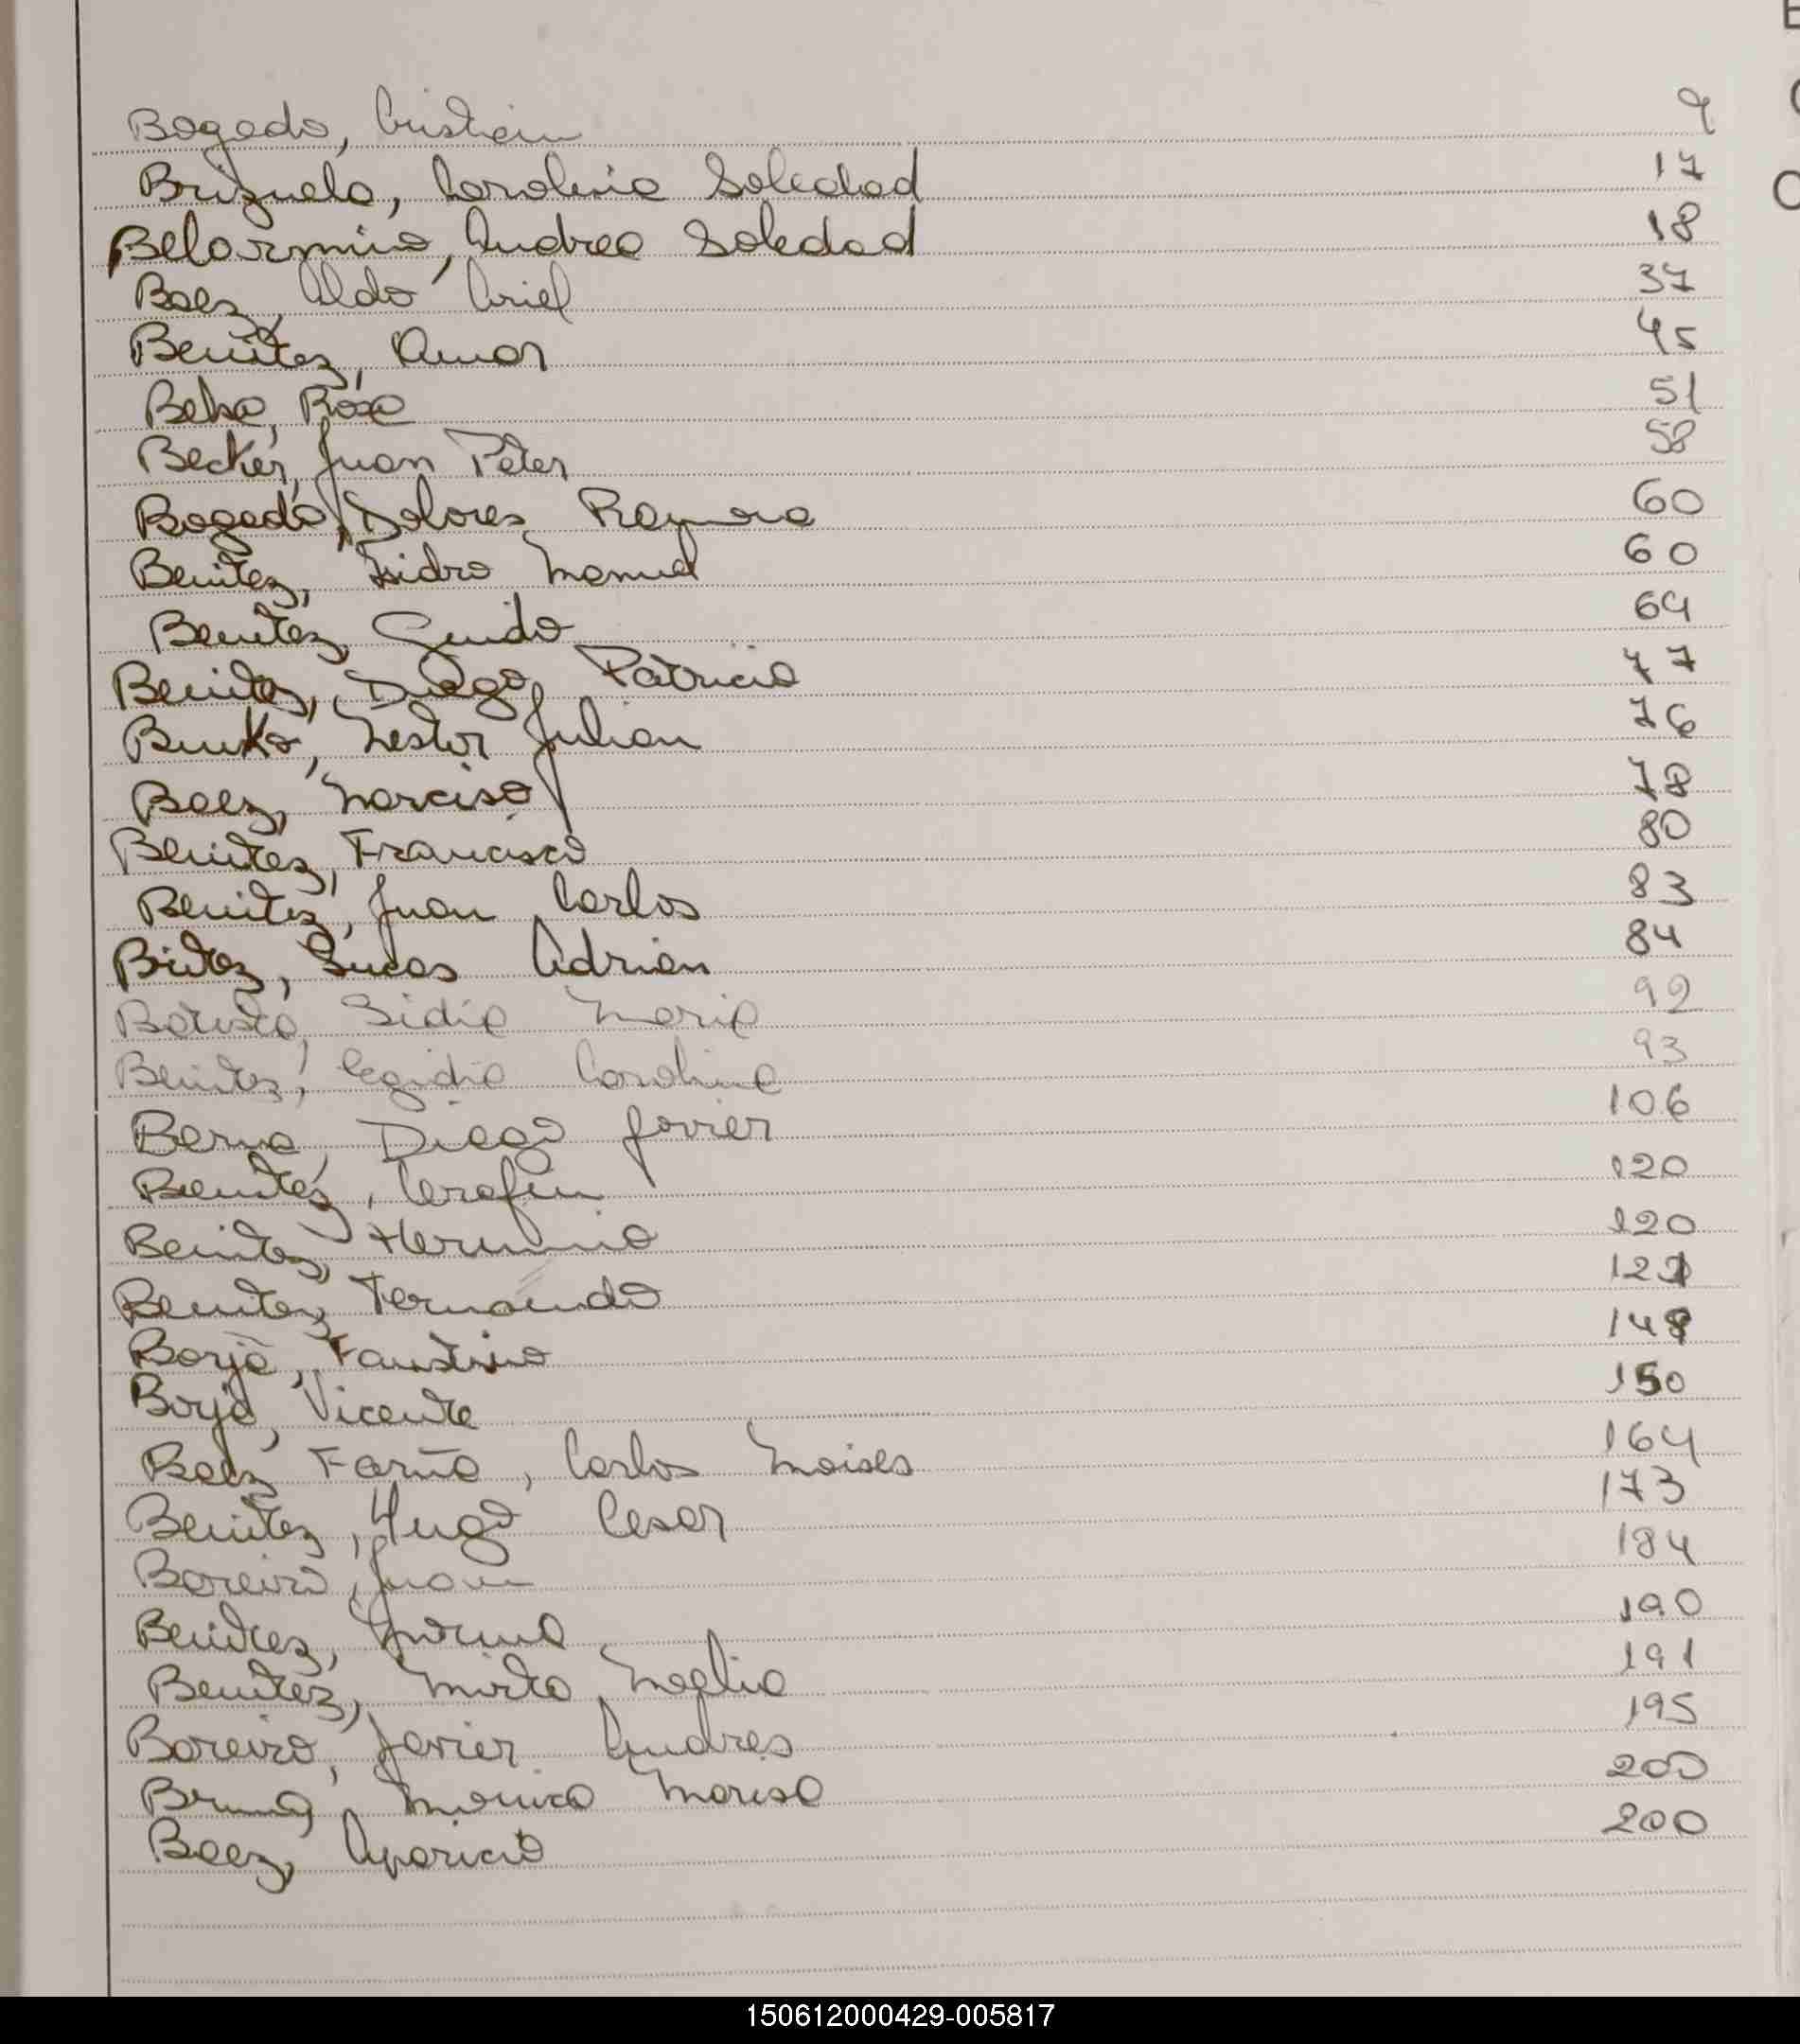 Bogado, Cristian 9
Brizuela, Carolina Soledad 17
Belarmino, Andrea Soledad 18
Baez, Aldo Ariel 37
Benitez, Amor 45
Rosa 51
Becker, Juan Peter 58
Bogado, Dolores Ramona 60
Benitez, Isidro Manuel 60
Benitez, Guido 64
Benitez, Diego Patricio 77
Néstor Julian 76
Baez, Narciso 78
Benitez, Francisco 80
Benitez, Juan Carlos 83
Britez, Lucas Adrian 84
Batista, Lidia Maria 92
Benitez, Egidia Carolina 93
Diego Javier 106
Benitez, Cerafin 120
Benitez, Herminio 120
Benitez, Fernando 121
Borja, Faustino
Borja, Vicente 150
Baez Fariña, Carlos Moises 164
Benitez, Hugo Cesar 173
Boreiro, Juan 184
Benitez, Norma 190
Benitez, Mirta Noelia 191
Boreiro, Javier Andres 195
Monica Marisa 200
Baez, Aparicio 200
150612000429-005817